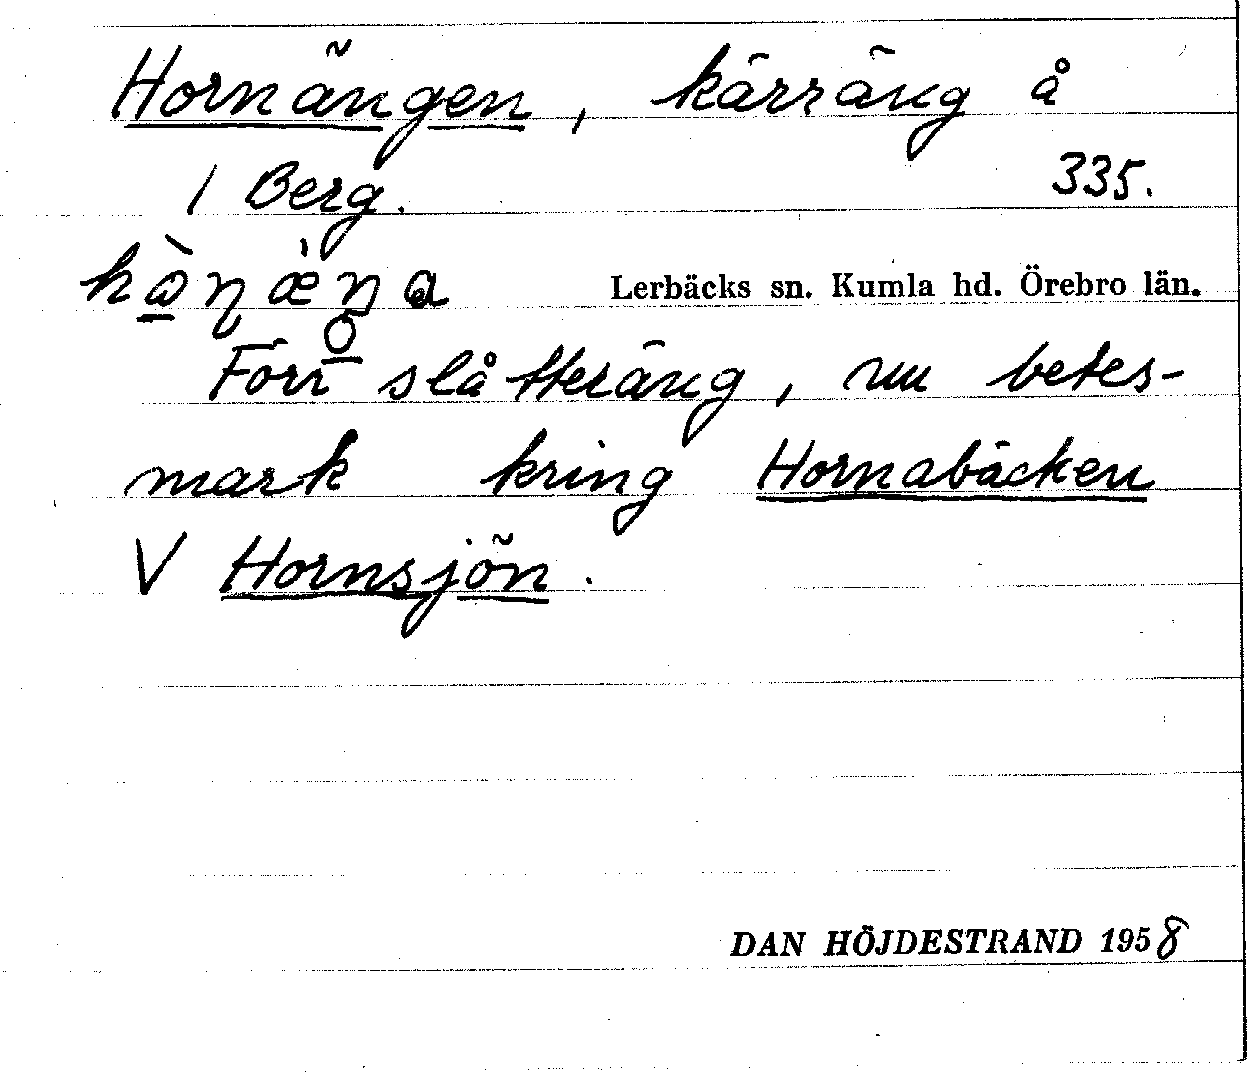 Hornängen, kärräng å
1 Berg. 335.
hò̱ŋæ̀ŋa Lerbäcks sn. Kumla hd. Örebro län.
Förr slåtteräng, nu betes-
mark kring Hornabäcken
V Hornsjön.
DAN HÖJDESTRAND 1958